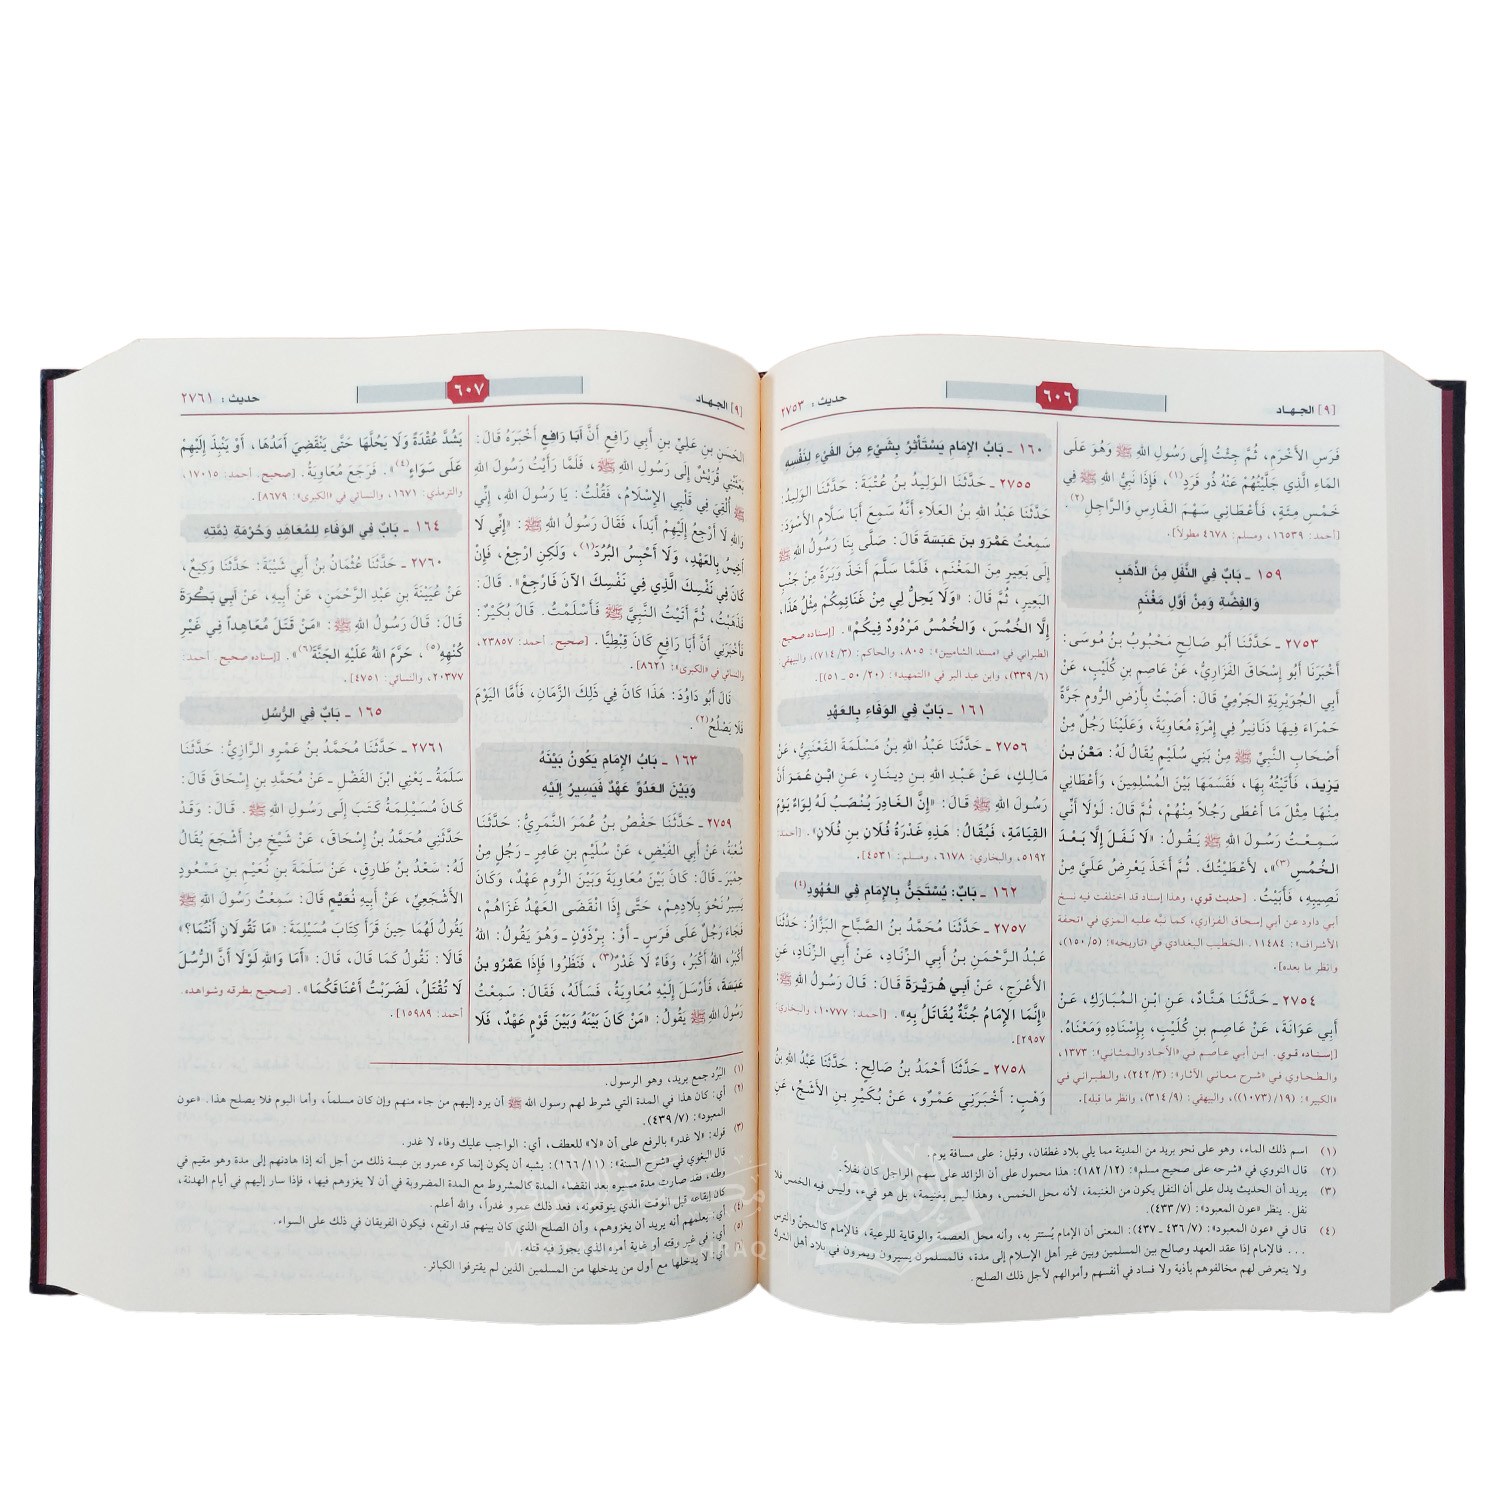 [٩] الجهاد
٦٠٦
حديث : ٢٧٥٣
فَرَسِ الأَخْرَمِ، ثُمَّ جِئْتُ إلَى رَسُولِ اللهِ ﷺ وَهُوَ عَلَى
المَاءِ الَّذِي جَلَّيْتُهُمْ عَنْهُ ذُو قَرَدٍ(١)، فَإِذَا نَبِيُّ اللهِ ﷺ فِي
خَمْسِ مِئَةٍ، فَأَعْطَانِي سَهْمَ الفَارِسِ وَالرَّاجِلِ(٢).
[أحمد: ١٦٥٣٩، ومسلم: ٤٦٧٨ مطولاً].
١٥٩ - بَابٌ فِي النَّفَلِ مِنَ الذَّهَبِ
وَالفِضَّةِ وَمِنْ أَوَّلِ مَغْنَمٍ
٢٧٥٣ - حَدَّثَنَا أَبُو صَالِحٍ مَحْبُوبُ بنُ مُوسَى:
أَخْبَرَنَا أَبُو إِسْحَاقَ الفَزَارِيُّ، عَنْ عَاصِمِ بنِ كُلَيْبٍ، عَنْ
أَبِي الجُوَيْرِيَةِ الجَرْمِيِّ قَالَ: أَصَبْتُ بِأَرْضِ الرُّومِ جَرَّةً
حَمْرَاءَ فِيهَا دَنَانِيرُ فِي إِمْرَةِ مُعَاوِيَةَ، وَعَلَيْنَا رَجُلٌ مِنْ
أَصْحَابِ النَّبِيِّ ﷺ مِنْ بَنِي سُلَيْمٍ يُقَالُ لَهُ: مَعْنُ بنُ
يَزِيدَ، فَأَتَيْتُهُ بِهَا، فَقَسَمَهَا بَيْنَ المُسْلِمِينَ، وَأَعْطَانِي
مِنْهَا مِثْلَ مَا أَعْطَى رَجُلاً مِنْهُمْ، ثُمَّ قَالَ: لَوْلَا أَنِّي
سَمِعْتُ رَسُولَ اللهِ ﷺ يَقُولُ: «لَا نَفَلَ إِلَّا بَعْدَ
الخُمُسِ(٣)»، لأَعْطَيْتُكَ. ثُمَّ أَخَذَ يَعْرِضُ عَلَيَّ مِنْ
نَصِيبِهِ، فَأَبَيْتُ. [حديث قوي، وهذا إسناد قد اختلفت فيه نسخ
أبي داود عن أبي إسحاق الفزاري، كما نبَّه عليه المزي في «تحفة
الأشراف»: ١١٤٨٤. الخطيب البغدادي في «تاريخه»: (٥/ ١٥٠)،
وانظر ما بعده].
٢٧٥٤ - حَدَّثَنَا هَنَّادٌ، عَنِ ابْنِ المُبَارَكِ، عَنْ
أَبِي عَوَانَةَ، عَنْ عَاصِمِ بنِ كُلَيْبٍ، بِإِسْنَادِهِ وَمَعْنَاهُ.
[إسناده قوي. ابن أبي عاصم في «الآحاد والمثاني»: ١٣٧٣،
والطحاوي في «شرح معاني الآثار»: (٣/ ٢٤٢)، والطبراني في
«الكبير»: (١٩/ (١٠٧٣))، والبيهقي: (٩/ ٣١٤)، وانظر ما قبله].
١٦٠ - بَابُ الإِمَامِ يَسْتَأْثِرُ بِشَيْءٍ مِنَ الفَيْءِ لِنَفْسِهِ
٢٧٥٥ - حَدَّثَنَا الوَلِيدُ بنُ عُتْبَةَ: حَدَّثَنَا الوَلِيدُ:
حَدَّثَنَا عَبْدُ اللهِ بنُ العَلَاءِ أَنَّهُ سَمِعَ أَبَا سَلَّامٍ الأَسْوَدَ:
سَمِعْتُ عَمْرَو بنَ عَبَسَةَ قَالَ: صَلَّى بِنَا رَسُولُ اللهِ ﷺ
إِلَى بَعِيرٍ مِنَ المَغْنَمِ، فَلَمَّا سَلَّمَ أَخَذَ وَبَرَةً مِنْ جَنْبِ
البَعِيرِ، ثُمَّ قَالَ: «وَلَا يَحِلُّ لِي مِنْ غَنَائِمِكُمْ مِثْلُ هَذَا،
إِلَّا الخُمُسَ، وَالخُمُسُ مَرْدُودٌ فِيكُمْ». [إسناده صحيح.
الطبراني في «مسند الشاميين»: ٨٠٥، والحاكم: (٣/ ٧١٤)، والبيهقي:
(٦/ ٣٣٩)، وابن عبد البر في «التمهيد»: (٢٠/ ٥٠ - ٥١)].
١٦١ - بَابٌ فِي الوَفَاءِ بِالعَهْدِ
٢٧٥٦ - حَدَّثَنَا عَبْدُ اللهِ بنُ مَسْلَمَةَ القَعْنَبِيُّ، عَنْ
مَالِكٍ، عَنْ عَبْدِ اللهِ بنِ دِينَارٍ، عَنِ ابْنِ عُمَرَ أَنَّ
رَسُولَ اللهِ ﷺ قَالَ: «إِنَّ الغَادِرَ يُنْصَبُ لَهُ لِوَاءٌ يَوْمَ
القِيَامَةِ، فَيُقَالُ: هَذِهِ غَدْرَةُ فُلَانِ بنِ فُلَانٍ». [أحمد:
٥١٩٢، والبخاري: ٦١٧٨، ومسلم: ٤٥٣١].
١٦٢ - بَابٌ: يُسْتَجَنُّ بِالإِمَامِ فِي العُهُودِ(٤)
٢٧٥٧ - حَدَّثَنَا مُحَمَّدُ بنُ الصَّبَّاحِ البَزَّازُ: حَدَّثَنَا
عَبْدُ الرَّحْمَنِ بنُ أَبِي الزِّنَادِ، عَنْ أَبِي الزِّنَادِ، عَنِ
الأَعْرَجِ، عَنْ أَبِي هُرَيْرَةَ قَالَ: قَالَ رَسُولُ اللهِ ﷺ:
«إِنَّمَا الإِمَامُ جُنَّةٌ يُقَاتَلُ بِهِ». [أحمد: ١٠٧٧٧، والبخاري:
٢٩٥٧].
٢٧٥٨ - حَدَّثَنَا أَحْمَدُ بنُ صَالِحٍ: حَدَّثَنَا عَبْدُ اللهِ بنُ
وَهْبٍ: أَخْبَرَنِي عَمْرٌو، عَنْ بُكَيْرِ بنِ الأَشَجِّ، عَنِ
(١) اسم ذلك الماء، وهو على نحو بريد من المدينة مما يلي بلاد غطفان، وقيل: على مسافة يوم.
(٢) قال النووي في «شرحه على صحيح مسلم»: (١٢/ ١٨٢): هذا محمول على أن الزائد على سهم الراجل كان نفلاً.
(٣) يريد أن الحديث يدل على أن النفل يكون من الغنيمة، لأنه محل الخمس، وهذا ليس بغنيمة، بل هو فيء، وليس فيه الخمس فلا
نفل. ينظر «عون المعبود»: (٧/ ٤٣٣).
(٤) قال في «عون المعبود»: (٧/ ٤٣٦ - ٤٣٧): المعنى أن الإمام يُستتر به، وأنه محل العصمة والوقاية للرعية، فالإمام كالمجنّ والترس
... فالإمام إذا عقد العهد وصالح بين المسلمين وبين غير أهل الإسلام إلى مدة، فالمسلمون يسيرون ويمرون في بلاد أهل الشرك
ولا يتعرض لهم مخالفوهم بأذية ولا فساد في أنفسهم وأموالهم لأجل ذلك الصلح.
[٩] الجهاد
٦٠٧
حديث : ٢٧٦١
الحَسَنِ بنِ عَلِيِّ بنِ أَبِي رَافِعٍ أَنَّ أَبَا رَافِعٍ أَخْبَرَهُ قَالَ:
بَعَثَتْنِي قُرَيْشٌ إِلَى رَسُولِ اللهِ ﷺ، فَلَمَّا رَأَيْتُ رَسُولَ اللهِ
ﷺ أُلْقِيَ فِي قَلْبِي الإِسْلَامُ، فَقُلْتُ: يَا رَسُولَ اللهِ، إِنِّي
وَاللهِ لَا أَرْجِعُ إِلَيْهِمْ أَبَداً، فَقَالَ رَسُولُ اللهِ ﷺ: «إِنِّي لَا
أَخِيسُ بِالعَهْدِ، وَلَا أَحْبِسُ البُرُدَ(١)، وَلَكِنِ ارْجِعْ، فَإِنْ
كَانَ فِي نَفْسِكَ الَّذِي فِي نَفْسِكَ الآنَ فَارْجِعْ». قَالَ:
فَذَهَبْتُ، ثُمَّ أَتَيْتُ النَّبِيَّ ﷺ فَأَسْلَمْتُ. قَالَ بُكَيْرٌ:
فَأَخْبَرَنِي أَنَّ أَبَا رَافِعٍ كَانَ قِبْطِيًّا. [صحيح. أحمد: ٢٣٨٥٧،
والنسائي في «الكبرى»: ٨٦٢١].
قَالَ أَبُو دَاوُدَ: هَذَا كَانَ فِي ذَلِكَ الزَّمَانِ، فَأَمَّا اليَوْمَ
فَلَا يَصْلُحُ(٢).
١٦٣ - بَابُ الإِمَامِ يَكُونُ بَيْنَهُ
وَبَيْنَ العَدُوِّ عَهْدٌ فَيَسِيرُ إِلَيْهِ
٢٧٥٩ - حَدَّثَنَا حَفْصُ بنُ عُمَرَ النَّمَرِيُّ: حَدَّثَنَا
شُعْبَةُ، عَنْ أَبِي الفَيْضِ، عَنْ سُلَيْمِ بنِ عَامِرٍ - رَجُلٍ مِنْ
حِمْيَرَ - قَالَ: كَانَ بَيْنَ مُعَاوِيَةَ وَبَيْنَ الرُّومِ عَهْدٌ، وَكَانَ
يَسِيرُ نَحْوَ بِلَادِهِمْ، حَتَّى إِذَا انْقَضَى العَهْدُ غَزَاهُمْ،
فَجَاءَ رَجُلٌ عَلَى فَرَسٍ - أَوْ: بِرْذَوْنٍ - وَهُوَ يَقُولُ: اللهُ
أَكْبَرُ، اللهُ أَكْبَرُ، وَفَاءٌ لَا غَدْرٌ(٣)، فَنَظَرُوا فَإِذَا عَمْرُو بنُ
عَبَسَةَ، فَأَرْسَلَ إِلَيْهِ مُعَاوِيَةُ، فَسَأَلَهُ، فَقَالَ: سَمِعْتُ
رَسُولَ اللهِ ﷺ يَقُولُ: «مَنْ كَانَ بَيْنَهُ وَبَيْنَ قَوْمٍ عَهْدٌ، فَلَا
يَشُدَّ عُقْدَةً وَلَا يَحُلَّهَا حَتَّى يَنْقَضِيَ أَمَدُهَا، أَوْ يَنْبِذَ إِلَيْهِمْ
عَلَى سَوَاءٍ(٤)». فَرَجَعَ مُعَاوِيَةُ. [صحيح. أحمد: ١٧٠١٥،
والترمذي: ١٦٧١، والنسائي في «الكبرى»: ٨٦٧٩].
١٦٤ - بَابٌ فِي الوَفَاءِ لِلمُعَاهَدِ وَحُرْمَةِ ذِمَّتِهِ
٢٧٦٠ - حَدَّثَنَا عُثْمَانُ بنُ أَبِي شَيْبَةَ: حَدَّثَنَا وَكِيعٌ،
عَنْ عُيَيْنَةَ بنِ عَبْدِ الرَّحْمَنِ، عَنْ أَبِيهِ، عَنْ أَبِي بَكْرَةَ
قَالَ: قَالَ رَسُولُ اللهِ ﷺ: «مَنْ قَتَلَ مُعَاهِداً فِي غَيْرِ
كُنْهِهِ(٥)، حَرَّمَ اللهُ عَلَيْهِ الجَنَّةَ(٦)». [إسناده صحيح. أحمد:
٢٠٣٧٧، والنسائي: ٤٧٥١].
١٦٥ - بَابٌ فِي الرُّسُلِ
٢٧٦١ - حَدَّثَنَا مُحَمَّدُ بنُ عَمْرٍو الرَّازِيُّ: حَدَّثَنَا
سَلَمَةُ - يَعْنِي ابْنَ الفَضْلِ - عَنْ مُحَمَّدِ بنِ إِسْحَاقَ قَالَ:
كَانَ مُسَيْلِمَةُ كَتَبَ إِلَى رَسُولِ اللهِ ﷺ. قَالَ: وَقَدْ
حَدَّثَنِي مُحَمَّدُ بنُ إِسْحَاقَ، عَنْ شَيْخٍ مِنْ أَشْجَعَ يُقَالُ
لَهُ: سَعْدُ بنُ طَارِقٍ، عَنْ سَلَمَةَ بنِ نُعَيْمِ بنِ مَسْعُودٍ
الأَشْجَعِيِّ، عَنْ أَبِيهِ نُعَيْمٍ قَالَ: سَمِعْتُ رَسُولَ اللهِ ﷺ
يَقُولُ لَهُمَا حِينَ قَرَأَ كِتَابَ مُسَيْلِمَةَ: «مَا تَقُولَانِ أَنْتُمَا؟»
قَالَا: نَقُولُ كَمَا قَالَ، قَالَ: «أَمَا وَاللهِ لَوْلَا أَنَّ الرُّسُلَ
لَا تُقْتَلُ، لَضَرَبْتُ أَعْنَاقَكُمَا». [صحيح بطرقه وشواهده.
أحمد: ١٥٩٨٩].
(١) البُرُد جمع بريد، وهو الرسول.
(٢) أي: كان هذا في المدة التي شرط لهم رسول الله ﷺ أن يرد إليهم من جاء منهم وإن كان مسلماً، وأما اليوم فلا يصلح هذا. «عون
المعبود»: (٧/ ٤٣٩).
(٣) قوله: «لا غدر» بالرفع على أن «لا» للعطف، أي: الواجب عليك وفاء لا غدر.
قال البغوي في «شرح السنة»: (١١/ ١٦٦): يشبه أن يكون إنما كره عمرو بن عبسة ذلك من أجل أنه إذا هادنهم إلى مدة وهو مقيم في
وطنه، فقد صارت مدة مسيره بعد انقضاء المدة كالمشروط مع المدة المضروبة في أن لا يغزوهم فيها، فإذا سار إليهم في أيام الهدنة،
كان إيقاعه قبل الوقت الذي يتوقعونه، فعد ذلك عمرو غدراً، والله أعلم.
(٤) أي: يعلمهم أنه يريد أن يغزوهم، وأن الصلح الذي كان بينهم قد ارتفع، فيكون الفريقان في ذلك على السواء.
(٥) أي: في غير وقته أو غاية أمره الذي يجوز فيه قتله.
أي: لا يدخلها مع أول من يدخلها من المسلمين الذين لم يقترفوا الكبائر.